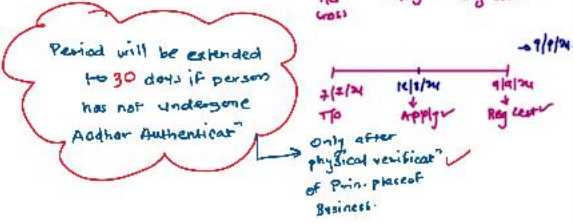 Cross
Period will be extended
to 30 days if person
has not undergone
Aadhar Authenticatⁿ
→ 9/9/24
9/9/24
T/O
Apply ✓
Reg cert ✓
Only after
physical verificatⁿ ✓
of Prin. place of
Business.